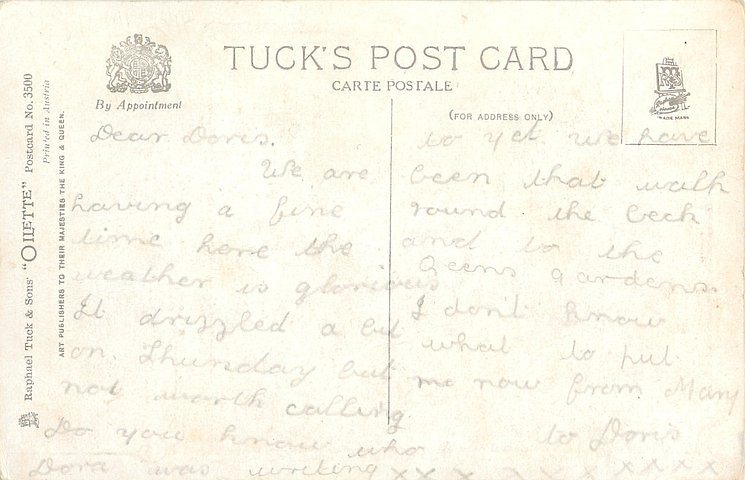 TUCK'S POST CARD
CARTE POSTALE
By Appointment
(FOR ADDRESS ONLY)
TRADE MARK
Raphael Tuck & Sons' "OILETTE" Postcard No. 3500
Printed in Austria
ART PUBLISHERS TO THEIR MAJESTIES THE KING & QUEEN.
Dear Doris.
We are
having a fine
time here the
weather is glorious
It drizzled a bit
on. Thursday but
not worth calling.
Do you know who
Dora was writing
to yet. We have
been that walk
round the beck
and to the
Qeens gardens.
I don't know
what to put
now from Mary
to Doris
xx x x x x x x x x